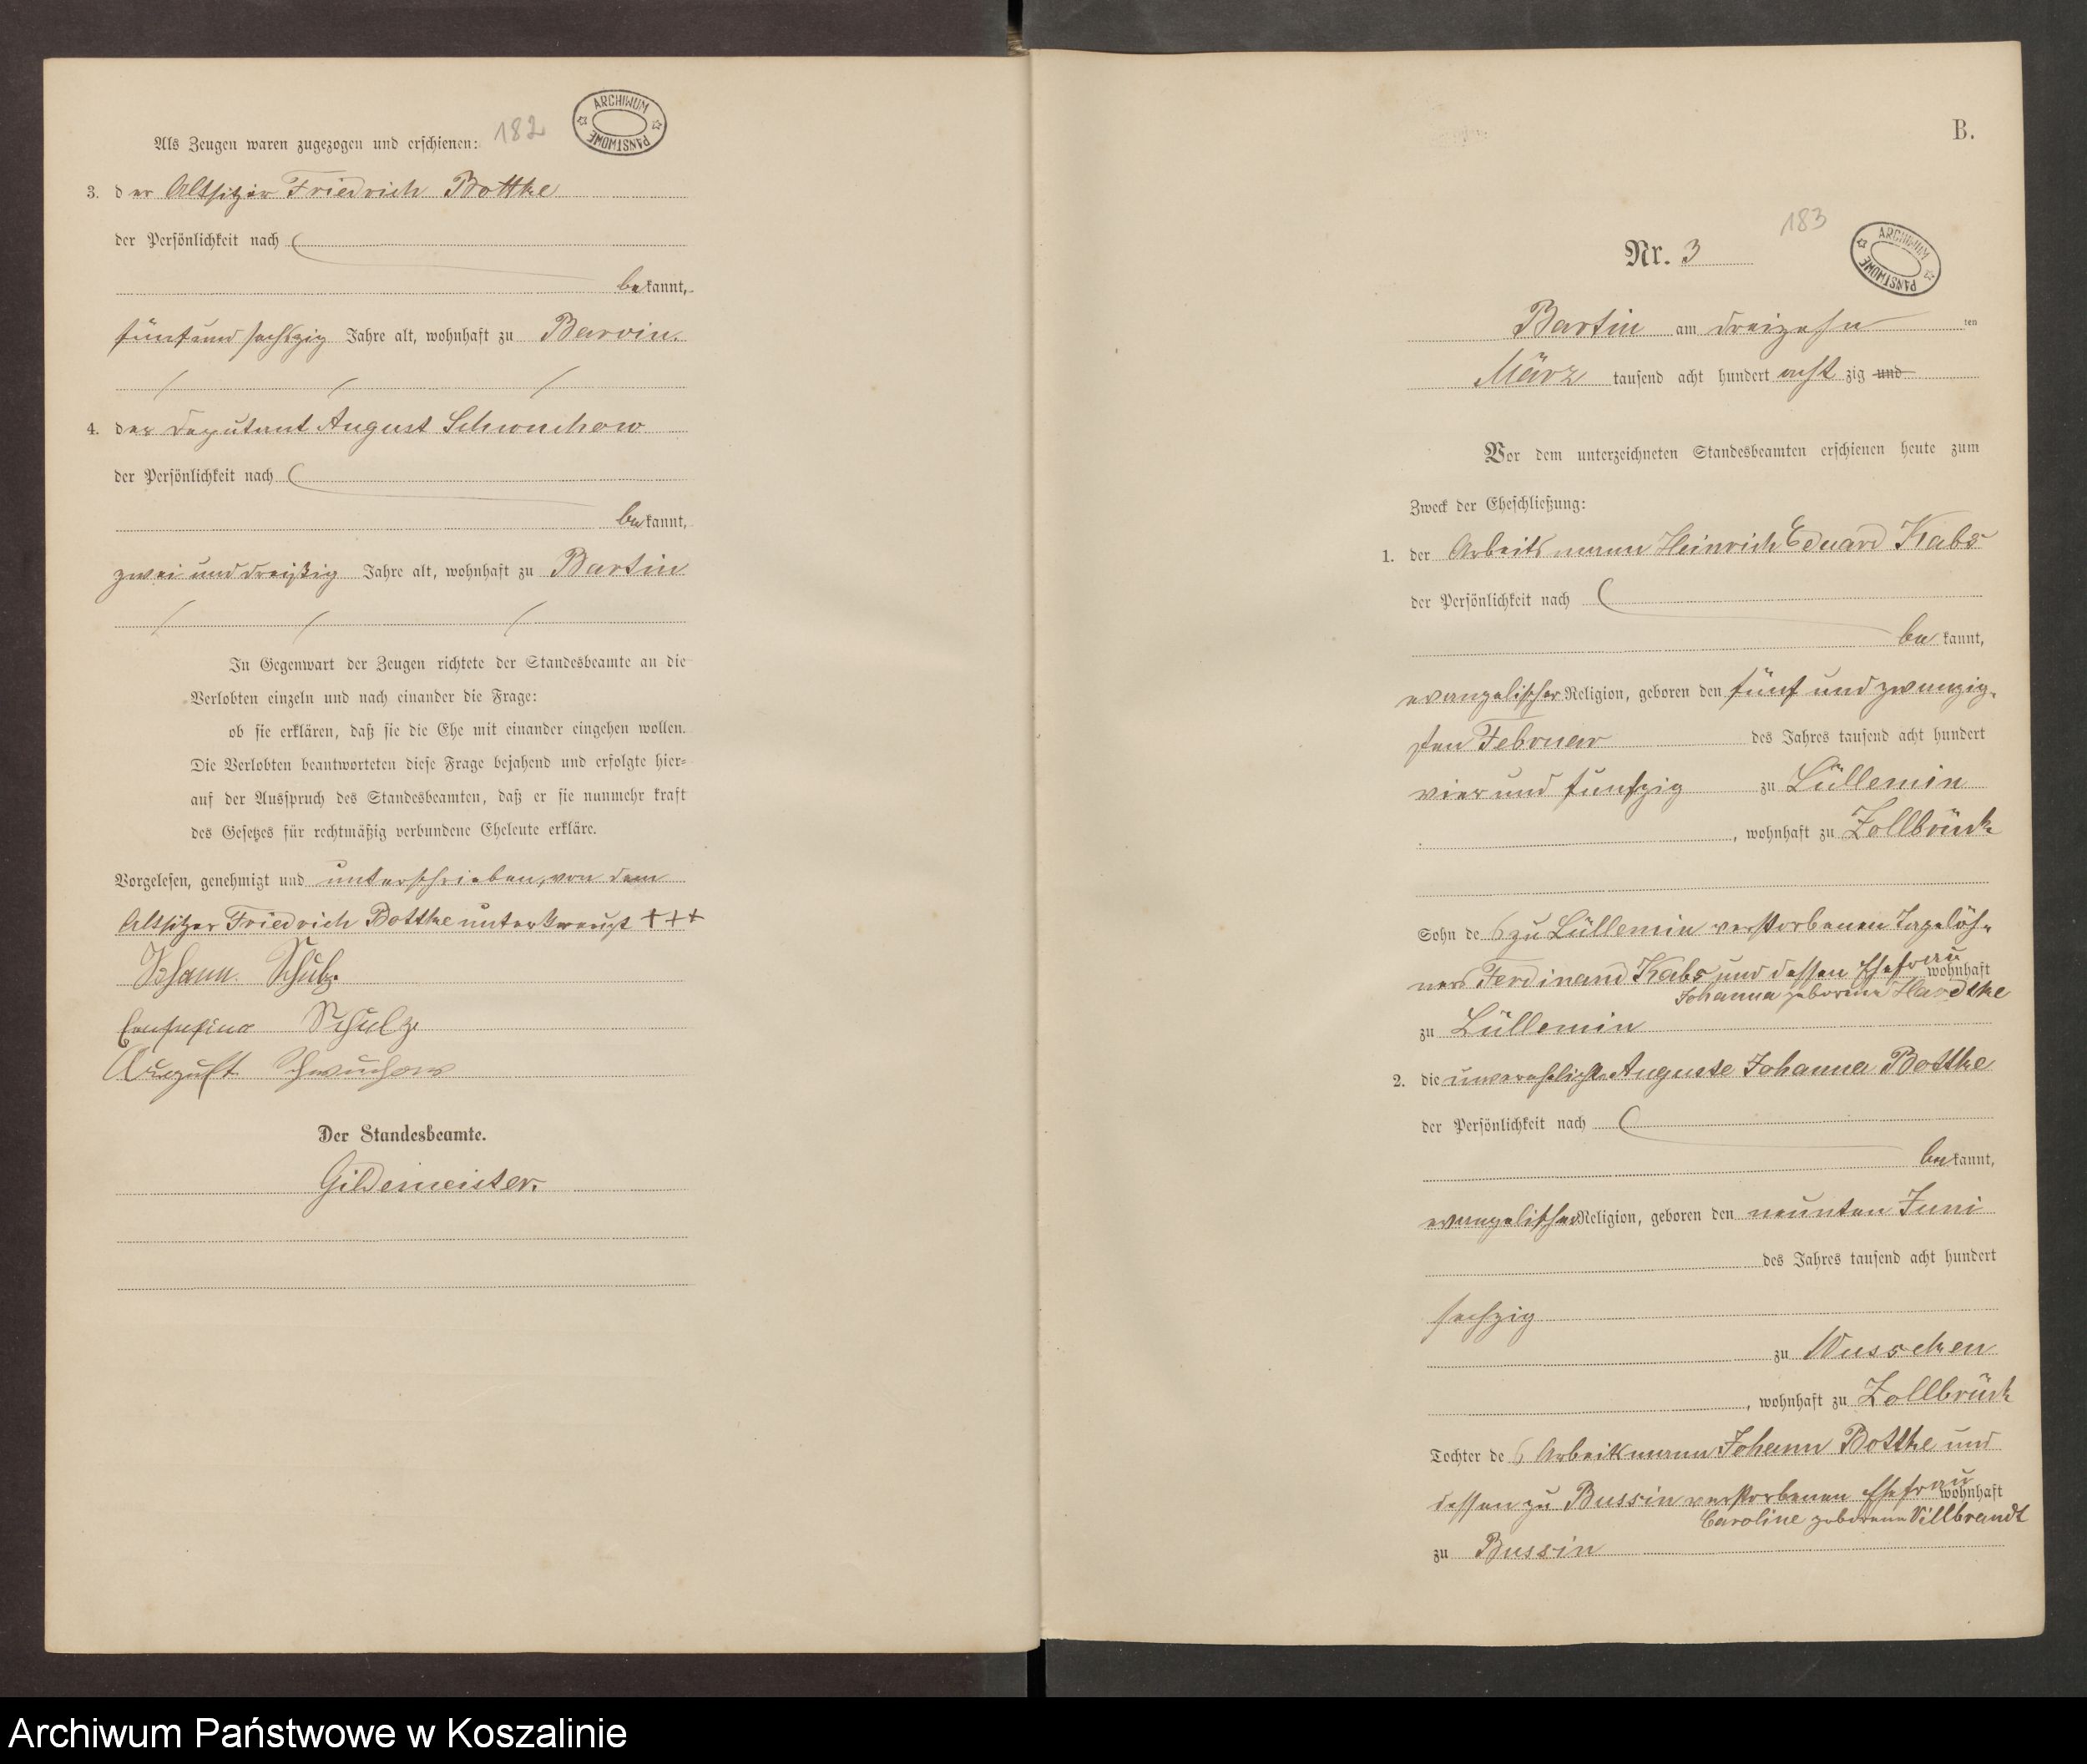 182
ARCHIWUM PAŃSTWOWE
Als Zeugen waren zugezogen und erschienen:
3. der Altsitzer Friedrich Bottke
der Persönlichkeit nach
bekannt,
fünf und sechszig Jahre alt, wohnhaft zu Barvin.
4. der Deputant August Schwuchow
der Persönlichkeit nach
bekannt,
zwei und dreißig Jahre alt, wohnhaft zu Bartin
In Gegenwart der Zeugen richtete der Standesbeamte an die
Verlobten einzeln und nach einander die Frage:
ob sie erklären, daß sie die Ehe mit einander eingehen wollen.
Die Verlobten beantworteten diese Frage bejahend und erfolgte hier-
auf der Ausspruch des Standesbeamten, daß er sie nunmehr kraft
des Gesetzes für rechtmäßig verbundene Eheleute erkläre.
Vorgelesen, genehmigt und unterschrieben, von dem
Altsitzer Friedrich Bottke unterkreuzt +++
Johann Schulz
Schulz
August Schwuchow
Der Standesbeamte.
Gildemeister.
B.
183
ARCHIWUM PAŃSTWOWE
Nr. 3
Bartin am dreizehn ten
März tausend acht hundert acht zig und
Vor dem unterzeichneten Standesbeamten erschienen heute zum
Zweck der Eheschließung:
1. der Arbeitsmann Heinrich Eduard Kabs
der Persönlichkeit nach
bekannt,
evangelischer Religion, geboren den fünf und zwanzig-
sten Februar des Jahres tausend acht hundert
vier und funfzig zu Lüllemin
, wohnhaft zu Zollbrück
Sohn des zu Lüllemin verstorbenen Tagelöh-
ners Ferdinand Kabs und dessen Ehefrau wohnhaft
Johanna geborene Hardtke
zu Lüllemin
2. die unverehelichte Auguste Johanna Bottke
der Persönlichkeit nach
bekannt,
evangelischer Religion, geboren den neunten Juni
des Jahres tausend acht hundert
sechzig
zu Wusseken
, wohnhaft zu Zollbrück
Tochter des Arbeitsmann Johann Bottke und
dessen zu Bussin verstorbenen Ehefrau wohnhaft
Caroline geborene Villbrandt
zu Bussin
Archiwum Państwowe w Koszalinie